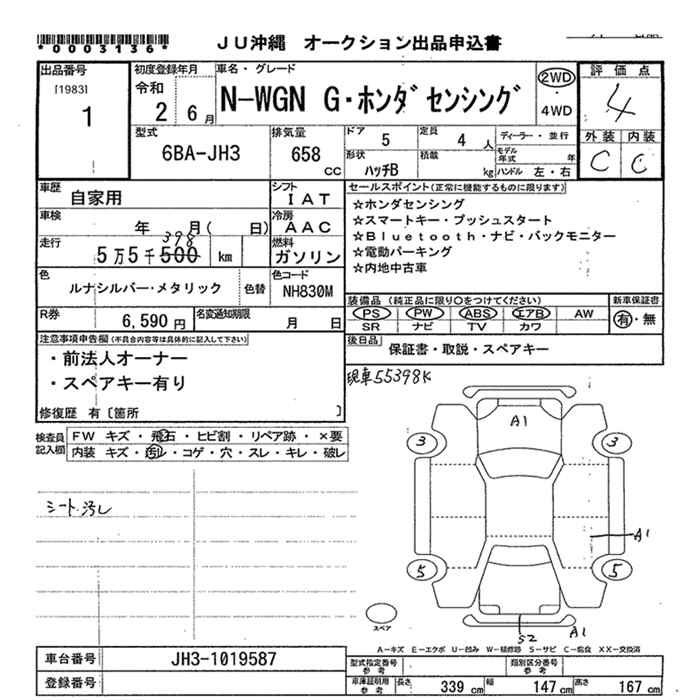 *0003136*
JU沖縄 オークション出品申込書
出品番号
[1983]
1
初度登録年月
令和
2 6月
車名・グレード
N-WGN G・ホンダセンシング
2WD
・
4WD
評価点
4
外装 内装
C C
型式
6BA-JH3
排気量
658
cc
ドア 5
定員 4 人
ディーラー・並行
形状 ハッチB
積載 kg
モデル年式 年
ハンドル 左・右
車歴 自家用
シフト IAT
車検 年 月( 日)
冷房 AAC
走行 5万5千500 km
398
燃料 ガソリン
色 ルナシルバー・メタリック
色替
色コード NH830M
R券 6,590円
名変通知期限 月 日
セールスポイント(正常に機能するものに限ります)
☆ホンダセンシング
☆スマートキー・プッシュスタート
☆Bluetooth・ナビ・バックモニター
☆電動パーキング
☆内地中古車
装備品(純正品に限り○をつけてください)
PS PW ABS エアB AW
SR ナビ TV カワ
新車保証書
有・無
後日品 保証書・取説・スペアキー
注意事項申告欄(不具合内容等は具体的に記入して下さい)
・前法人オーナー
・スペアキー有り
修復歴 有〔箇所 〕
現車55398K
検査員記入欄
FW キズ・飛石・ヒビ割・リペア跡・×要
内装 キズ・汚れ・コゲ・穴・スレ・キレ・破レ
シート汚レ
A1
3 3
A1
5 5
S2 A1
スペア
A-キズ E-エクボ U-凹み W-補修跡 S-サビ C-腐食 XX-交換済
車台番号 JH3-1019587
登録番号
型式指定番号 参考
類別区分番号 参考
車庫証明用 参考
長さ 339cm 幅 147cm 高さ 167cm